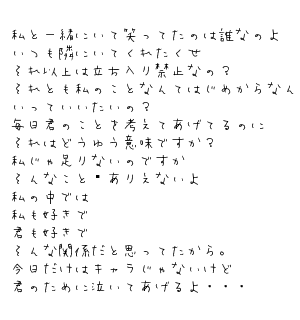 私と一緒にいて笑ってたのは誰なのよ
いつも隣にいてくれたくせ
それ以上は立ち入り禁止なの?
それとも私のことなんてはじめからなん
いっていいたいの?
毎日君のことを考えてあげてるのに
それはどうゆう意味ですか?
私じゃ足りないのですか
そんなこと・ありえないよ
私の中では
私も好きで
君も好きで
そんな関係だと思ってたから。
今日だけはキャラじゃないけど
君のために泣いてあげるよ・・・